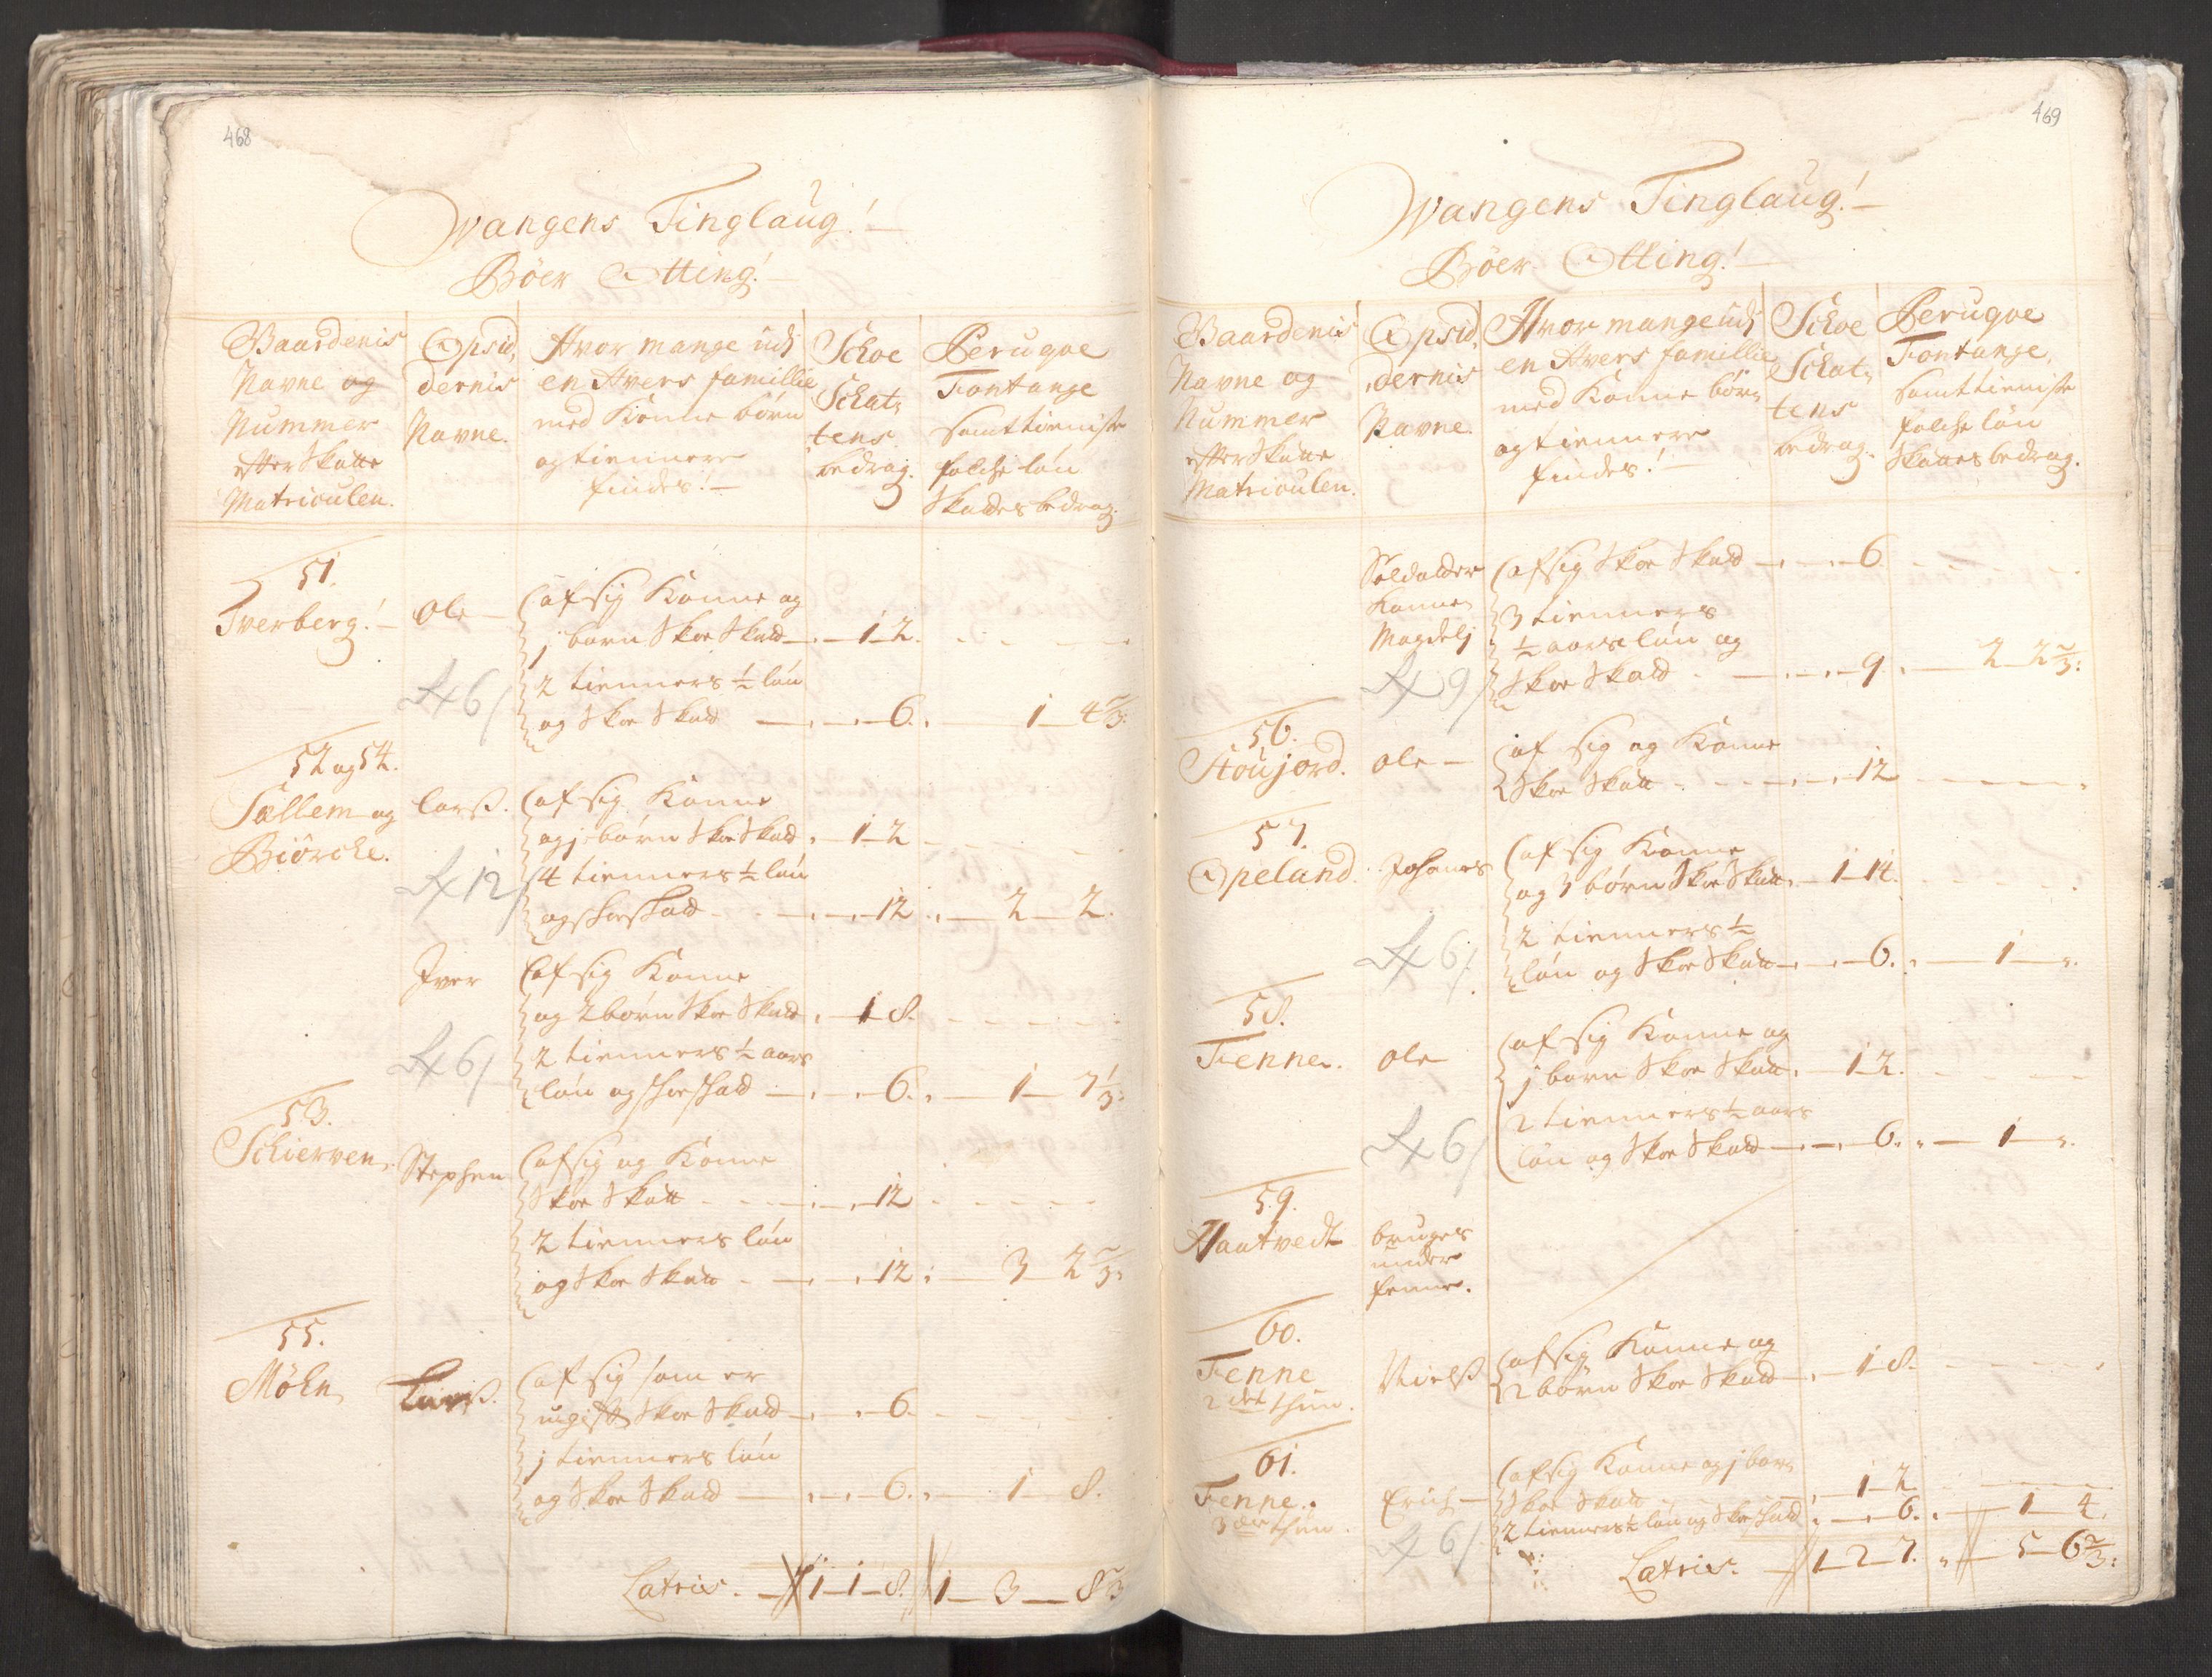 468
Wangens Tinglaug!
Böer Otting!
Gaardenis
Navne og
Nummer
effter Skatte
Matriculen.
Opsid,
dernis
Navne.
Hvor mange udj
en Hvers famillie
med Konne börn
og tiennere
findes!
Schoe
Schat,
tens
bedrag.
Peruqve
Fontange
samt tieniste
folche lön
Skattes bedrag.
51.
Tverberg! Ole
af sig Konne og
j barn Skoe Skatt 1 2
2 tienners ½ lön
og Skoe Skatt 6. 1 4 2/3:
6/
52 og 54.
Sællem og
Biörche.
Larß.
af sig Konne
og j börn Skoe Skatt 1 2
4 tienners ½ lön
og skoe skatt 12 2 2.
12/
Iver
af sig Konne
og 2 börn Skoe Skatt 1 8.
2 tienners ½ aars
lön og skoe skatt 6. 1 7 1/3:
6/
53.
Schierven, Stephen
af sig og Konne
Skoe Skatt 12
2 tienners lön
og Skoe Skatt 12: 3 2 2/3:
55.
Möln, Larß.
af sig som er
ugift Skoe Skatt 6.
j tienners lön
og Skoe Skatt 6. 1 8.
Latris. 1 1 8. 1 3 8 2/3
469
Wangens Tinglaug!
Böer Otting!
Gaardenis
Navne og
Nummer
effter Skatte
Matriculen.
Opsid,
dernis
Navne.
Hvor mange udj
en Hvers famillie
med Konne börn
og tiennere
findes!
Schoe
Schat,
tens
bedrag.
Peruqve
Fontange,
samt tieniste
folche lön
Skattes bedrag.
Soldatder
Konne
Magdelj
af sig Skoe Skatt 6
3 tienners
½ aars lön og
Skoe Skatt 9. 2 2 2/3:
9/
56.
Stoujord. Ole
af sig og Konne
Skoe Skatt 12
57.
Opeland. Johanes
af sig Konne
og 3 börn Skoe Skatt 1 14.
2 tienners ½
lön og Skoe Skatt 6. 1
6/
58.
Fenne. Ole
af sig Konne og
j barn Skoe Skatt. 1 2.
2 tienners ½ aars
lön og Skoe Skatt 6. 1
6/
59.
Haatvedt
bruges
under
Fenne.
60.
Fenne
2 det thun.
Nielß
af sig Konne og
2 börn Skoe Skatt 1 8.
61.
Fenne.
3 die thun.
Erich
af sig Konne og j barn
Skoe Skatt 1 2
2 tienners ½ lön og Skoe Skatt 6. 1 4.
6/
Latris. 1 2 7. 5 6 2/3: